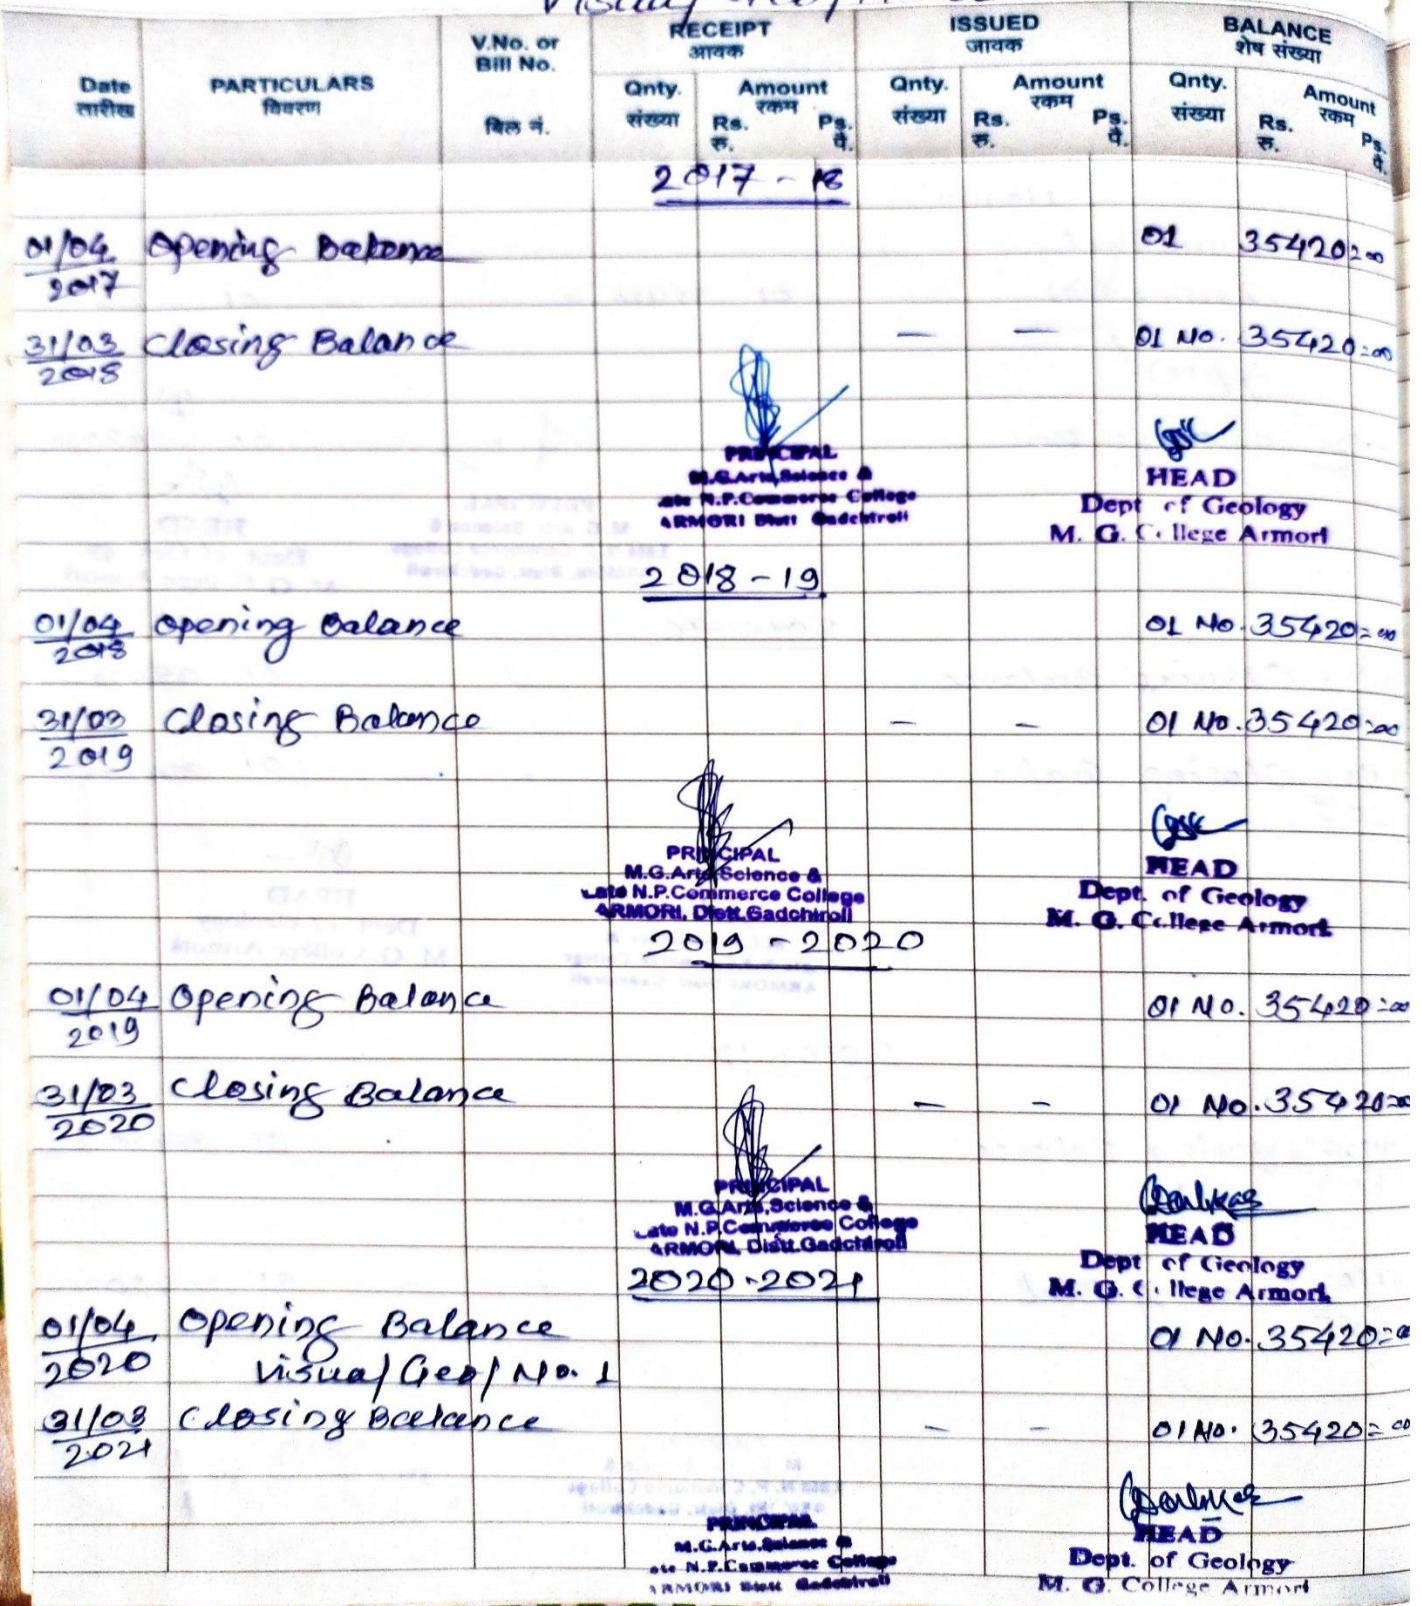 Date
तारीख
PARTICULARS
विवरण
V.No. or
Bill No.
बिल नं.
RECEIPT
आवक
Qnty.
संख्या
Amount
रकम
Rs.
रु.
Ps.
पै.
ISSUED
जावक
Qnty.
संख्या
Amount
रकम
Rs.
रु.
Ps.
पै.
BALANCE
शेष संख्या
Qnty.
संख्या
Amount
रकम
Rs.
रु.
Ps.
पै.
2017 - 18
01/04 2017 Opening Balance 01 35420=00
31/03 2018 Closing Balance — — 01 No. 35420=00
PRINCIPAL
M.G.Arts,Science &
ate N.P.Commerse College
ARMORI Distt Gadchiroli
HEAD
Dept of Geology
M. G. College Armori
2018 - 19
01/04 2018 Opening Balance 01 No. 35420=00
31/03 2019 Closing Balance — — 01 No. 35420=00
PRINCIPAL
M.G.Arts,Science &
Late N.P.Commerce College
ARMORI, Distt.Gadchiroli
HEAD
Dept. of Geology
M. G. College Armori
2019 - 2020
01/04 2019 Opening Balance 01 No. 35420=00
31/03 2020 Closing Balance — — 01 No. 35420=00
PRINCIPAL
M.G.Arts,Science &
Late N.P.Commerce College
ARMORI, Distt.Gadchiroli
HEAD
Dept of Geology
M. G. College Armori
2020-2021
01/04 2020 Opening Balance 01 No. 35420=00
Visual/Geo/No. 1
31/03 2021 Closing Balance — — 01 No. 35420=00
PRINCIPAL
M.G.Arts,Science &
ate N.P.Commerce College
ARMORI Distt Gadchiroli
HEAD
Dept. of Geology
M. G. College Armori